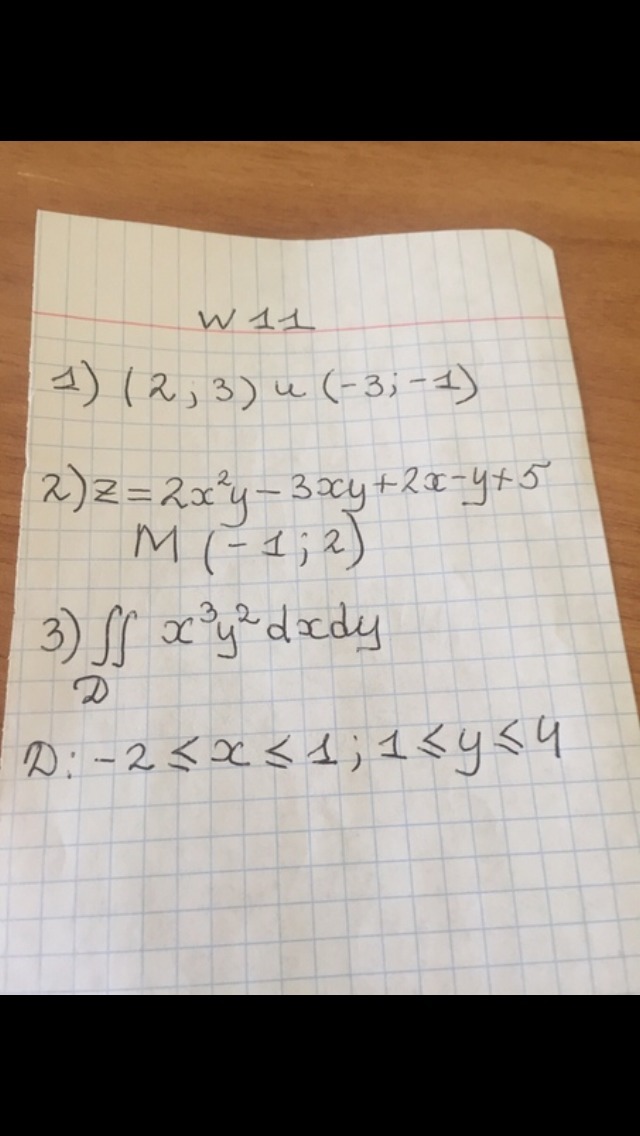 W 11
1) (2; 3) и (-3; -1)
2) z = 2x²y - 3xy + 2x - y + 5
M (-1; 2)
3) ∬ x³y² dxdy
D
D: -2 ≤ x ≤ 1; 1 ≤ y ≤ 4